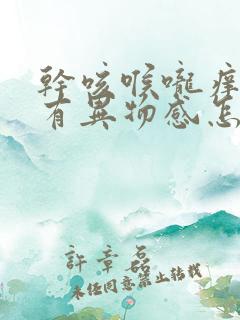 幹咳喉嚨痒
有異物感怎
許章磊
未经同意禁止转载